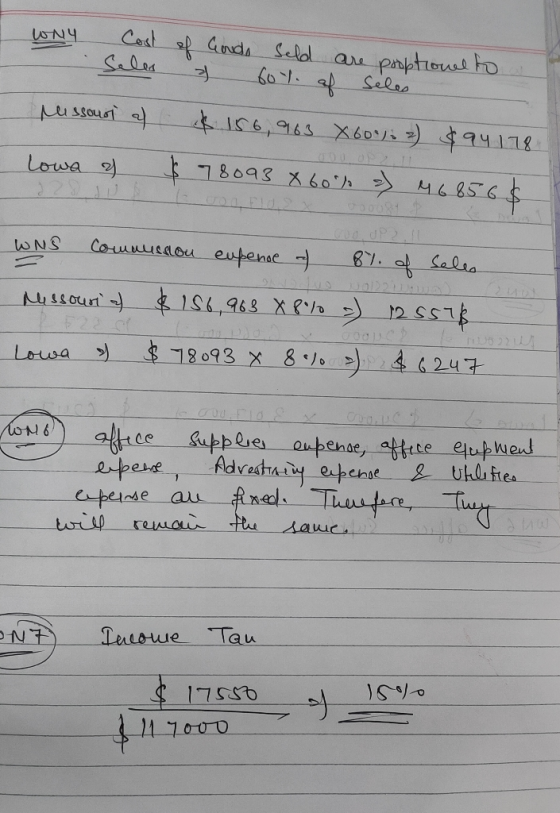 WN4 Cost of Goods Sold are proptional to
Sales ⇒ 60% of Sales
Missouri ⇒ $ 156,963 X 60% ⇒ $94178
Lowa ⇒ $ 78093 X 60% ⇒ 46856 $
WN5 Commission expense ⇒ 8% of Sales
Missouri ⇒ $ 156,963 X 8% ⇒ 12557$
Lowa ⇒ $ 78093 X 8% ⇒ $ 6247
WN6 office Supplies expense, office equpment
expense, Advrestining expense & Utilities
expense are fixed. Therefore, They
will remain the same.
WN7 Income Tax
$ 17550 ⇒ 15%
$ 117000